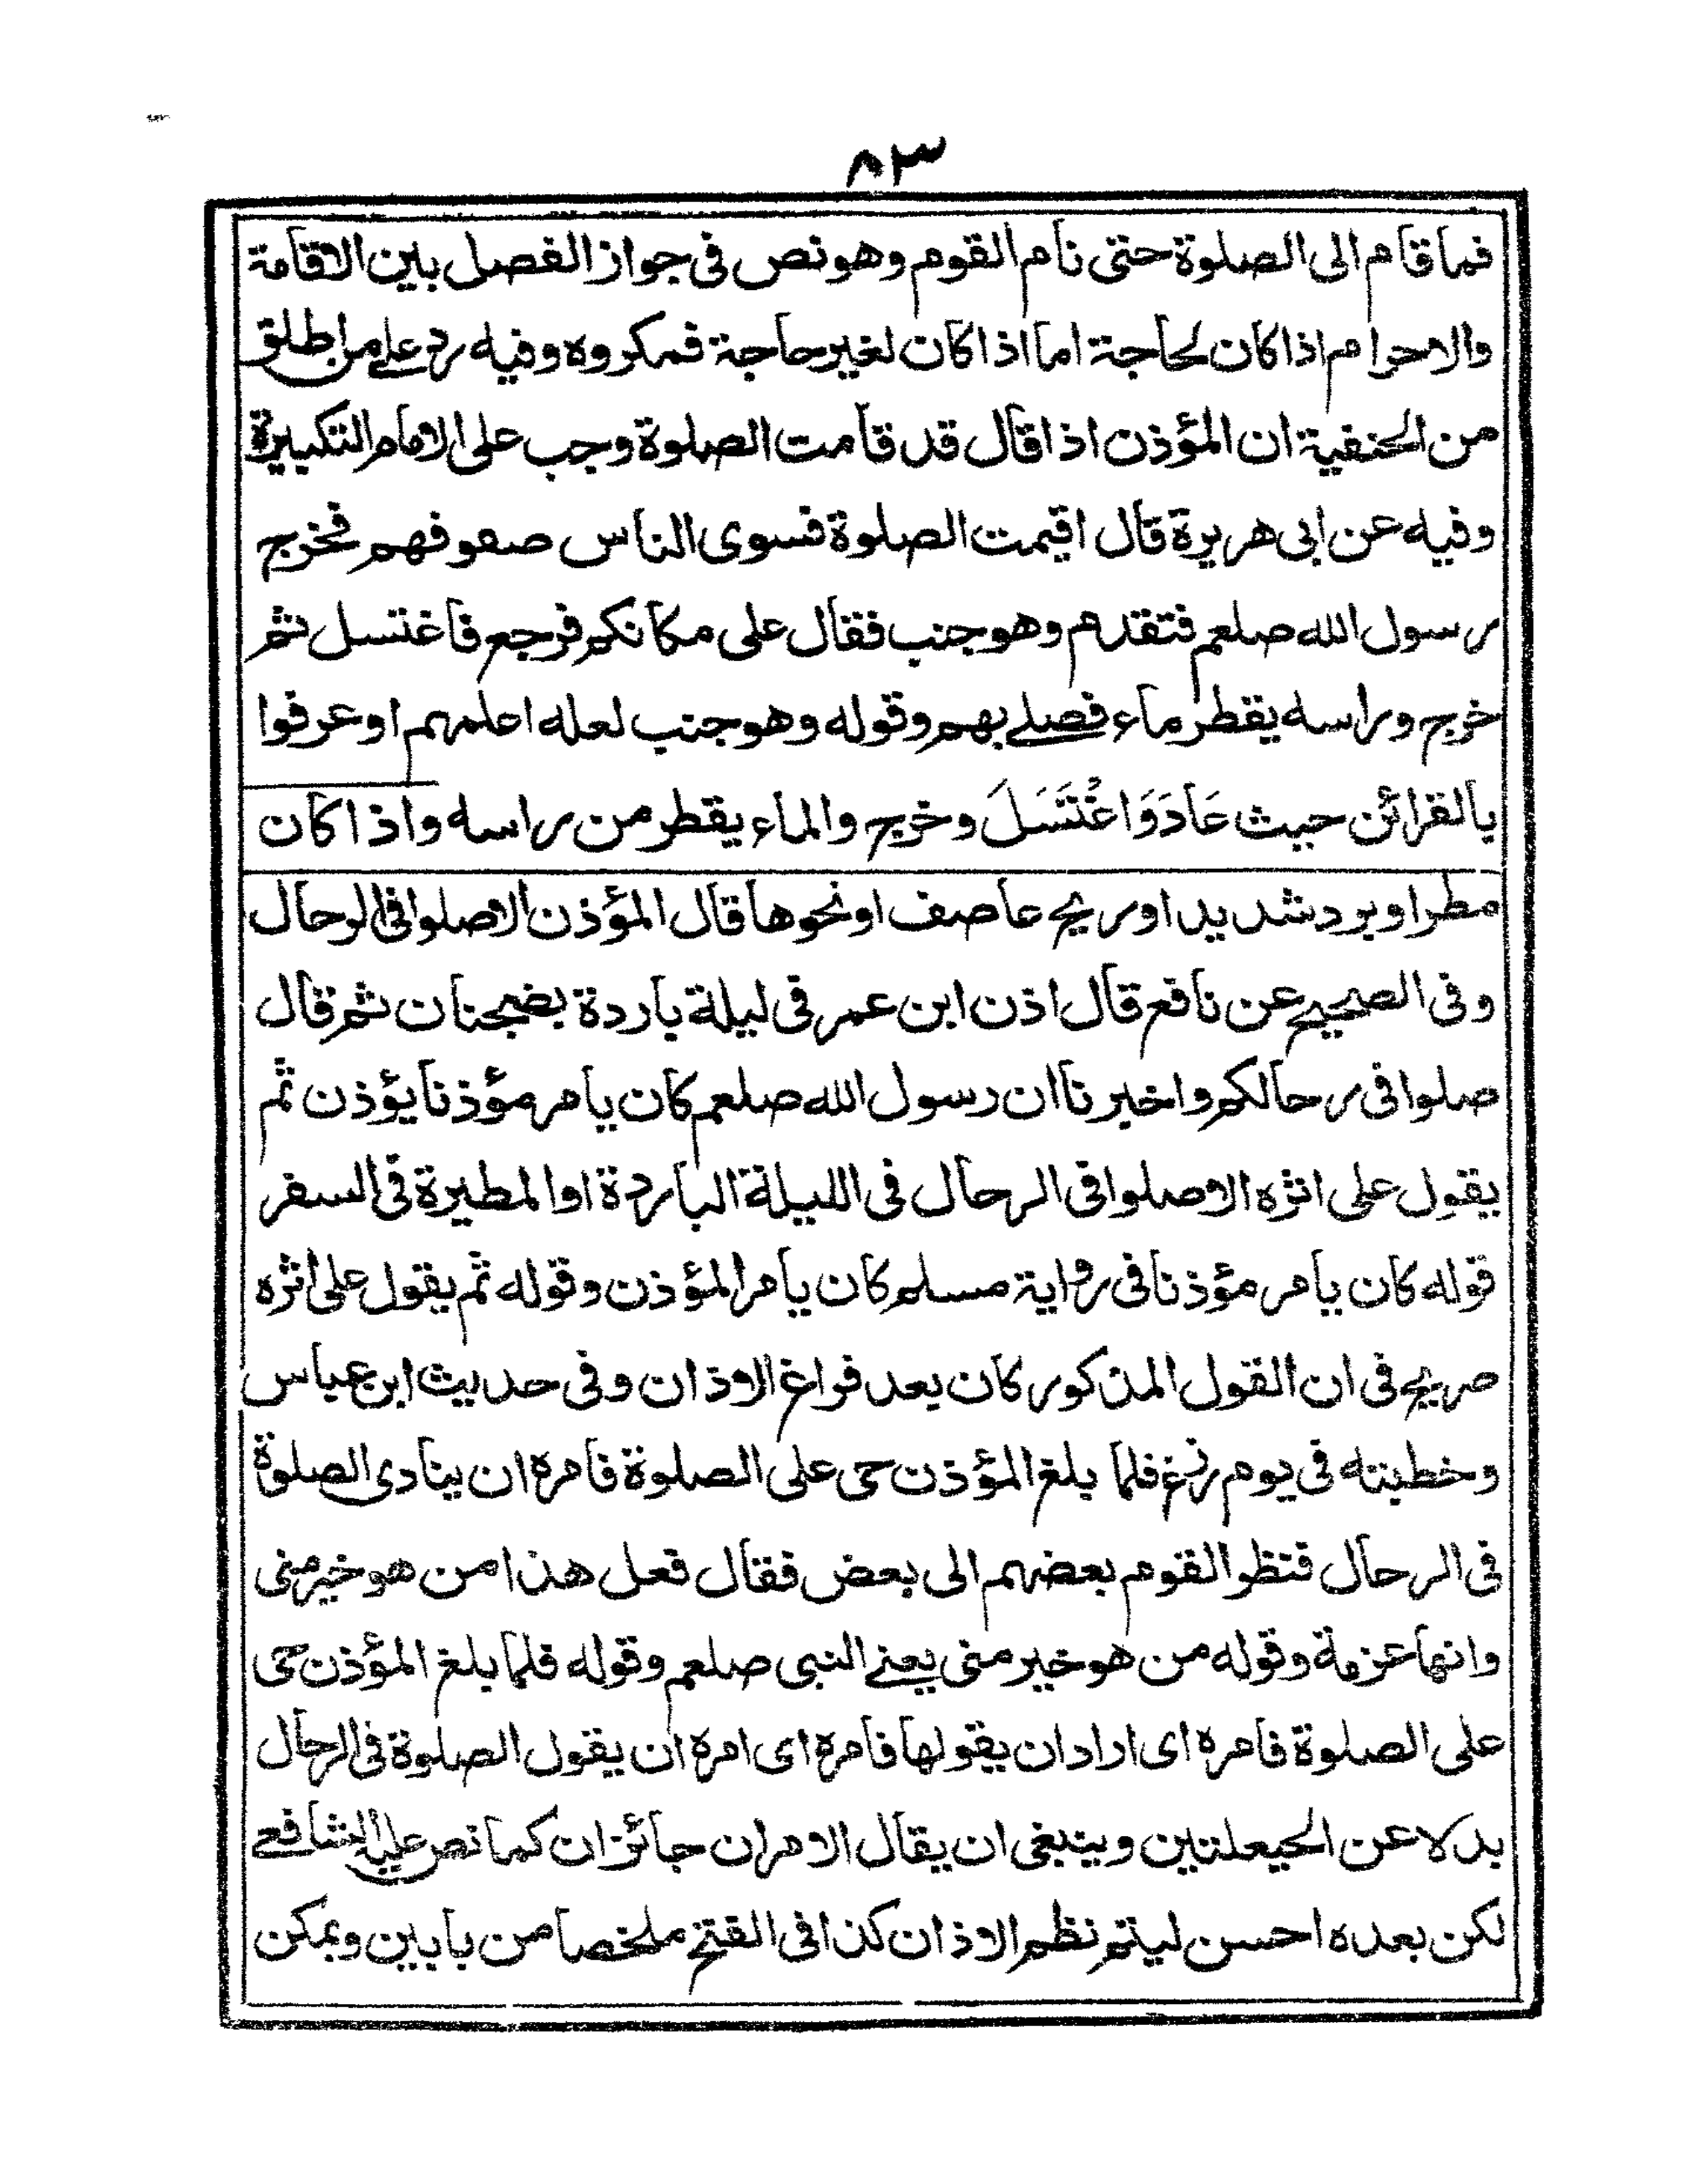 ٨٣
فما قام الى الصلوة حتى نام القوم وهو نص فى جواز الفصل بين الاقامة
والاحرام اذا كان لحاجة اما اذا كان لغير حاجة فمكروه وفيه رد على من اطلق
من الحنفية ان المؤذن اذا قال قد قامت الصلوة وجب على الامام التكبيرة
وفيه عن ابى هريرة قال اقيمت الصلوة فسوى الناس صفوفهم فخرج
رسول الله صلعم فتقدم وهو جنب فقال على مكانكم فرجع فاغتسل ثم
خرج وراسه يقطر ماء فصلے بهم وقوله وهو جنب لعله اعلمهم او عرفوا
بالقرائن حيث عَادَوَاغْتَسَلَ وخرج والماء يقطر من راسه واذا كان
مطر او برد شديد او ريح عاصف او نحوها قال المؤذن الا صلوا فى الرحال
وفى الصحيح عن نافع قال اذن ابن عمر فى ليلة باردة بضجنان ثم قال
صلوا فى رحالكم واخبرنا ان رسول الله صلعم كان يامر مؤذنا يؤذن ثم
يقول على اثره الا صلوا فى الرحال فى الليلة الباردة او المطيرة فى السفر
قوله كان يامر مؤذنا فى رواية مسلم كان يامر المؤذن وقوله ثم يقول على اثره
صريح فى ان القول المذكور كان بعد فراغ الاذان وفى حديث ابن عباس
وخطبته فى يوم رزغ فلما بلغ المؤذن حى على الصلوة فامره ان ينادى الصلوة
فى الرحال فنظر القوم بعضهم الى بعض فقال فعل هذا من هو خير منى
وانها عزمة وقوله من هو خير منى يعنے النبى صلعم وقوله فلما بلغ المؤذن حى
على الصلوة فامره اى اراد ان يقولها فامره اى امره ان يقول الصلوة فى الرحال
بدلا عن الحيعلتين وينبغى ان يقال الامران جائزان كما نص عليه الشافعے
لكن بعده احسن ليتم نظم الاذان كذا فى الفتح ملخصا من بابين ويمكن